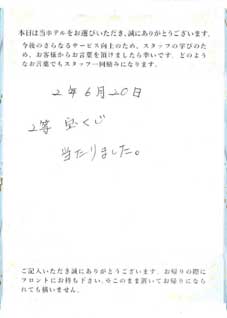 本日は当ホテルをお選びいただき、誠にありがとうございます。
今後のさらなるサービス向上のため、スタッフの学びのた
め、お客様からお言葉を頂けましたら幸いです。どのよう
なお言葉でもスタッフ一同励みになります。
2年6月20日
2等 宝くじ
当たりました。
ご記入いただき誠にありがとうございます。お帰りの際に
フロントにお持ち下さい。※このまま置いてお帰りになら
れても構いません。